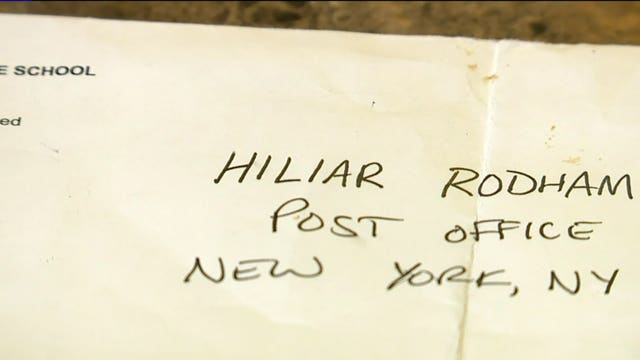 E SCHOOL
ed
HILIAR RODHAM
POST OFFICE
NEW YORK, NY